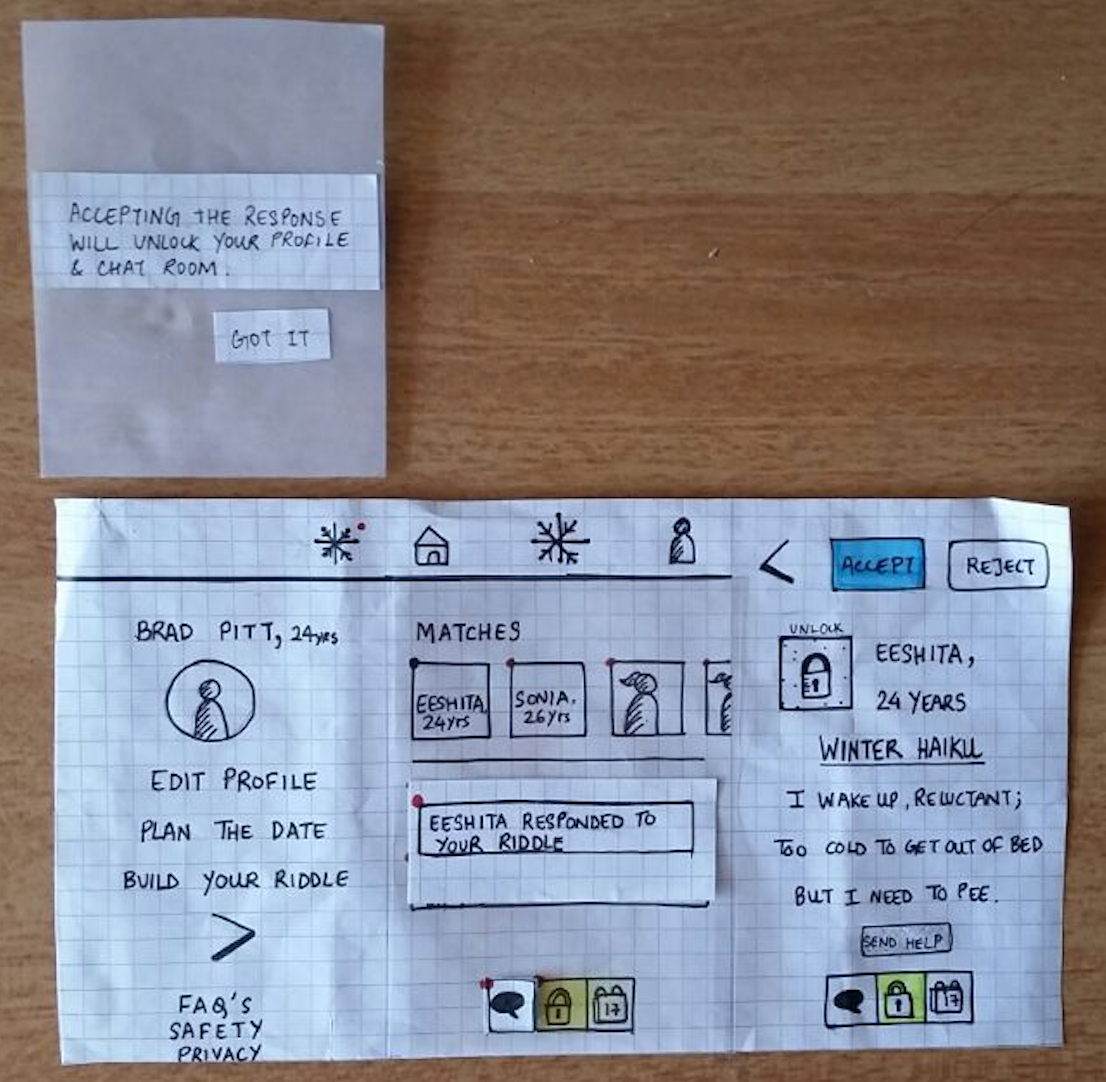 ACCEPTING THE RESPONSE
WILL UNLOCK YOUR PROFILE
& CHAT ROOM.
GOT IT
BRAD PITT, 24yrs
EDIT PROFILE
PLAN THE DATE
BUILD YOUR RIDDLE
>
FAQ'S
SAFETY
PRIVACY
MATCHES
EESHITA,
24yrs
SONIA,
26yrs
EESHITA RESPONDED TO
YOUR RIDDLE
17
<
ACCEPT
REJECT
UNLOCK
EESHITA,
24 YEARS
WINTER HAIKU
I WAKE UP, RELUCTANT;
TOO COLD TO GET OUT OF BED
BUT I NEED TO PEE.
SEND HELP
17